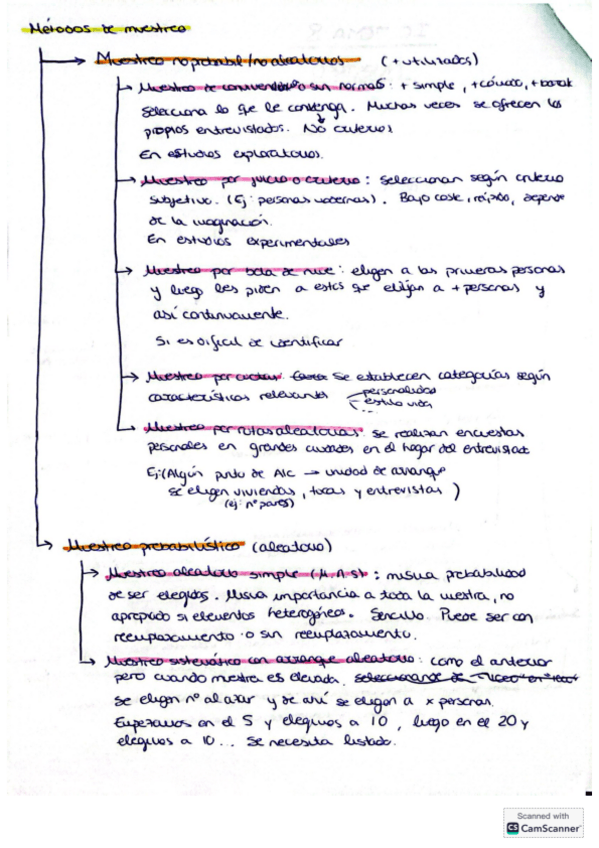 Métodos de muestreo
Muestreo no probabil/no aleatorios (+ utilizados)
Muestreo de conveniencia o sin normas: + simple, +cómodo, + barat
Selecciona lo que le convenga. Muchas veces se ofrecen los
propios entrevistados. No criterios
En estudios exploratorios.
Muestreo por juicio o criterio: Seleccionan según criterio
subjetivo. (Ej: personas modernas). Bajo coste, rápido, depende
de la imaginación.
En estudios experimentales
Muestreo por bola de nieve: eligen a las primeras personas
y luego les piden a estos que elijan a + personas y
así continuamente.
Si es difícil de identificar
Muestreo por cuotas: Se establecen categorías según
características relevantes
personalidad
estilo vida
...
Muestreo por rutas aleatorias: se realizan encuestas
personales en grandes ciudades en el hogar del entrevistado
Ej: (Algún punto de A/C → unidad de arranque
se eligen viviendas, tocas y entrevistas)
(ej: nº pares)
Muestreo probabilístico (aleatorio)
Muestreo aleatorio simple (M.A.S): misma probabilidad
de ser elegidos. Misma importancia a toda la muestra, no
apropiado si elementos heterogéneos. Sencillo. Puede ser con
reemplazamiento o sin reemplazamiento.
Muestreo sistemático con arranque aleatorio: como el anterior
pero cuando muestra es elevada.
se eligen nº al azar y de ahí se eligen a x personas.
Empezamos en el 5 y elegimos a 10, luego en el 20 y
elegimos a 10... Se necesita listado.
Scanned with
CS CamScanner